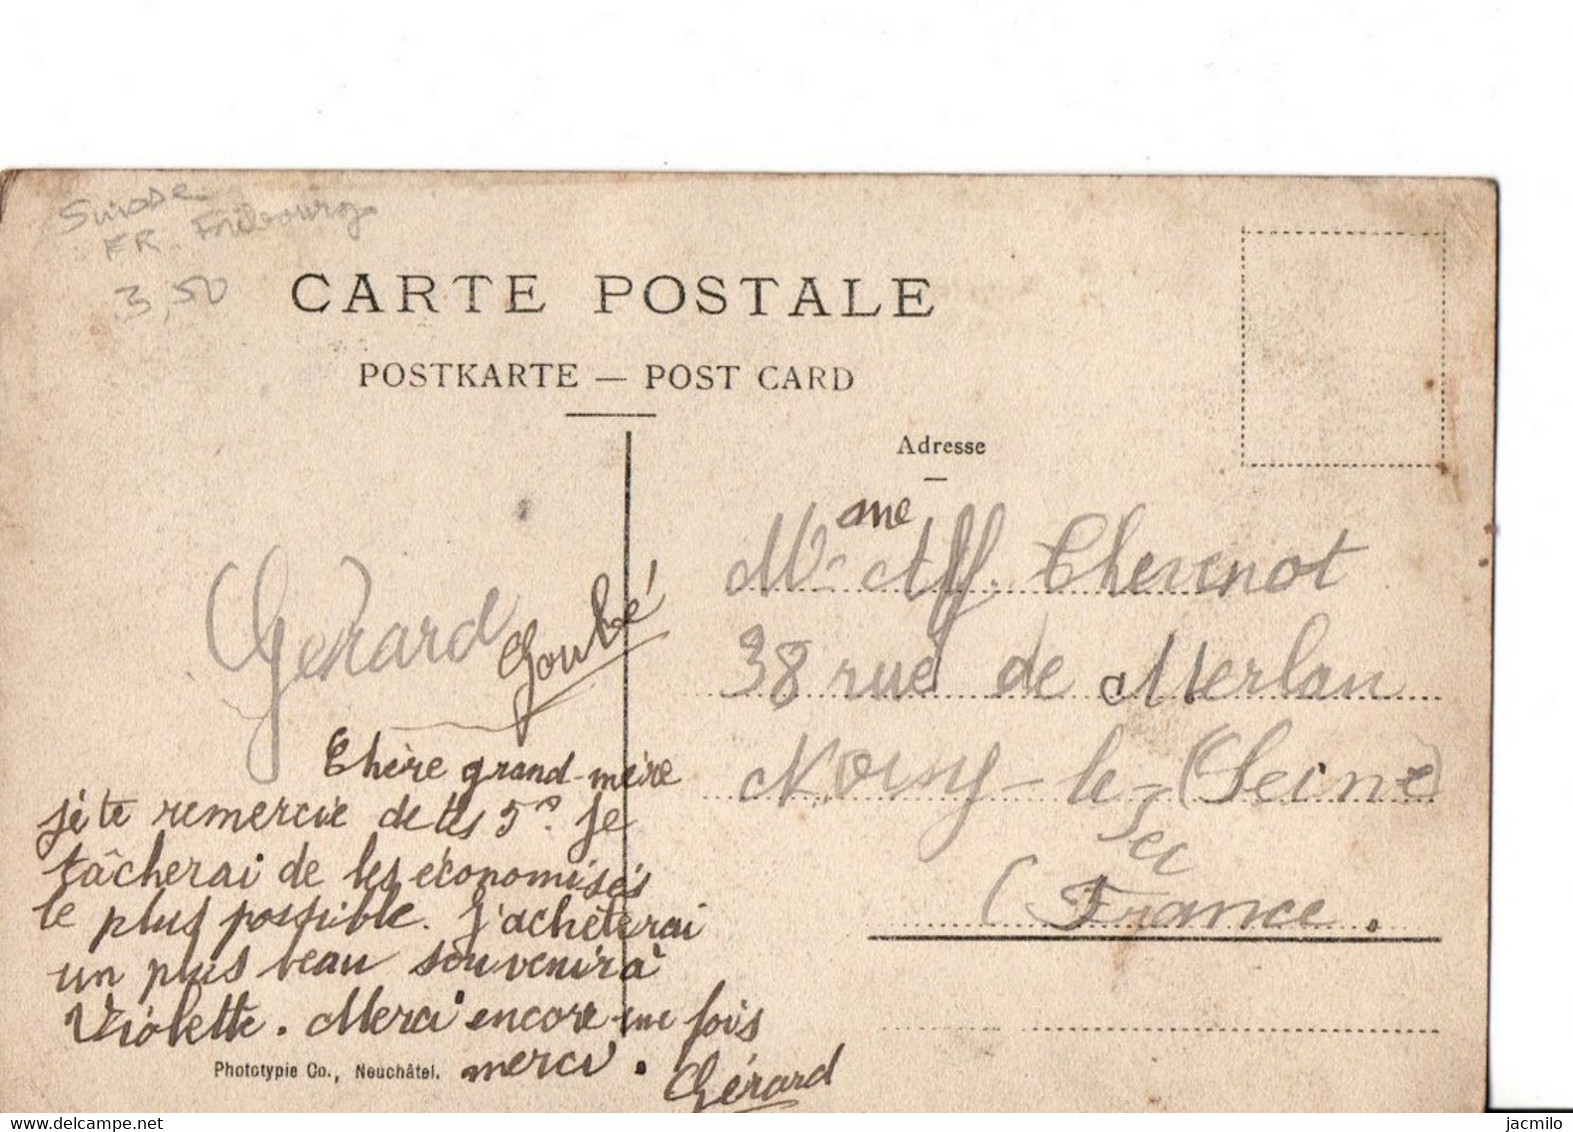 Suisse
FR Fribourg
3,50
CARTE POSTALE
POSTKARTE — POST CARD
Adresse
Mme Aff. Thevenot
38 rue de Merlan
Noisy-le-Sec (Seine)
(France.
Gérard Goubé
Chère grand-mère
je te remercie de tes 5 Je
tâcherai de les économisés
le plus possible. J'achèterai
un plus beau souvenir à
Violette. Merci encore une fois
merci. Gérard
Phototypie Co., Neuchâtel.
www.delcampe.net
jacmilo